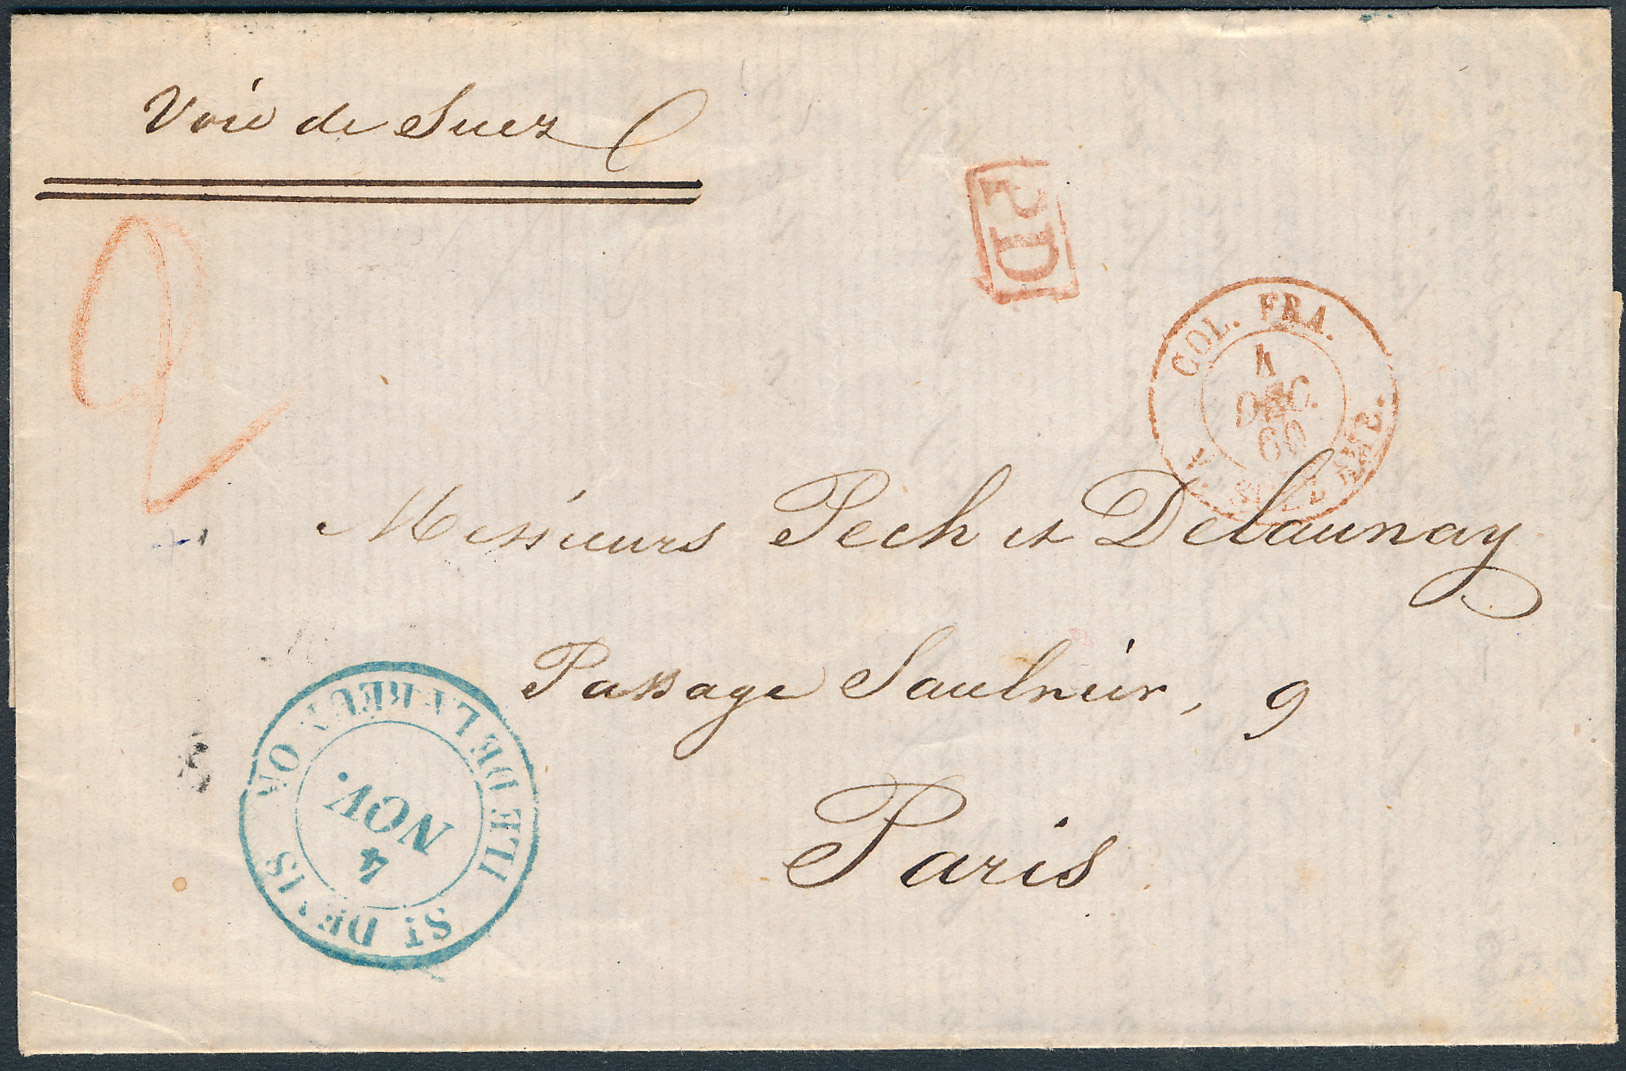 Voie de Suez
PD
2
COL. FRA.
4
DEC.
60
Messieurs Pech et Delaunay
Passage Saulnier, 9
Paris
ILE DE LA REUNION
4
NOV.
ST DENIS